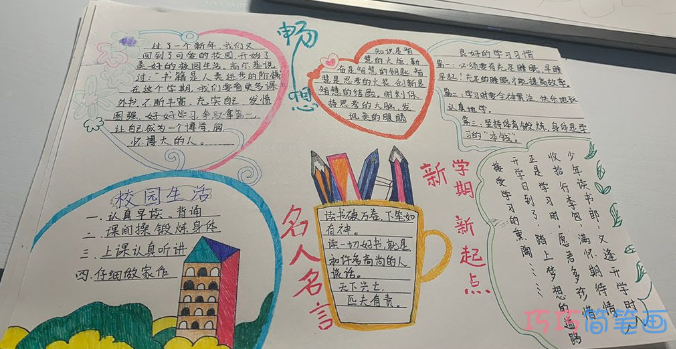 畅想
过了一个新年，我们又
回到了可爱的校园，开始了
美好的校园生活。高尔基说
过：书籍是人类进步的阶梯
在这个学期，我们要看更多课
外书，不断丰富，充实自己，发愤
图强，好好学习，争
让自己成为一个博学，胸
怀博大的人。
知识是智
慧的火炬，勤
奋是智慧的钥匙，智
慧是思考的大脑，创新是
智慧的结晶。时刻保
持思考的大脑，发
现美的眼睛
良好的学习习惯
第一：必须要有充足睡眠。早睡
早起！充足的睡眠才能提高效率。
第二：学习时要全神贯注，快乐玩耍
认真地学。
第三：坚持体育锻炼，身体是学
习的"本钱"。
校园生活
一、认真早读、背诵
二、课间操锻炼身体
三、上课认真听讲
四、仔细做家作
名人名言
读书破万卷，下笔如
有神。
读一切好书，就是
和许多高尚的人
谈话。
天下兴亡，
匹夫有责。
新学期 新起点
少年读书郎，又逢开学时
收拾行李囊，满怀期待情
正是学习时，愿君多珍惜
开学日到了，踏上梦想的道路
接受学习的熏陶……
巧巧简笔画